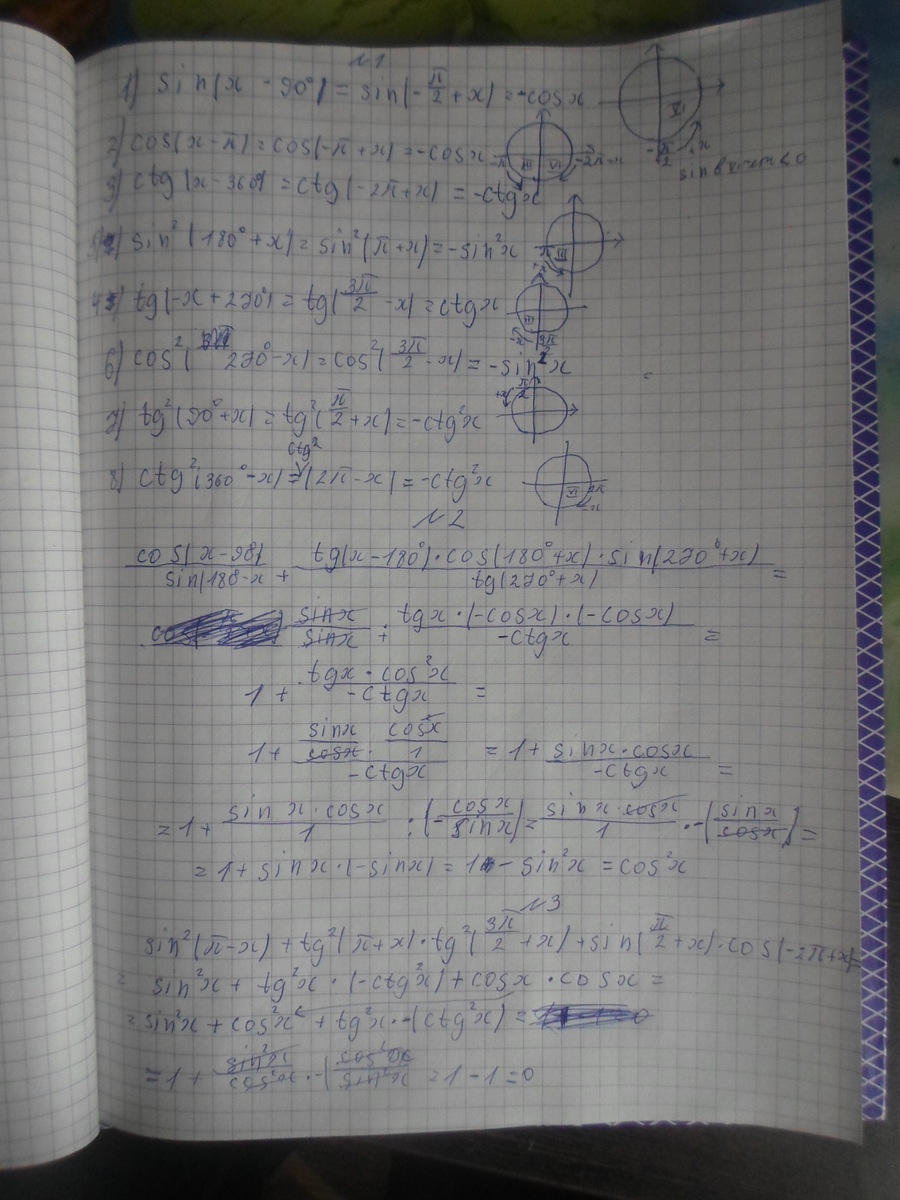 №1
1) sin(x - 90°) = sin(-π/2 + x) = -cos x
2) cos(x - π) = cos(-π + x) = -cos x
3) ctg(x - 360°) = ctg(-2π + x) = -ctg x
sin в VI чет < 0
sin²(180° + x) = sin²(π + x) = -sin²x
tg(-x + 270°) = tg(3π/2 - x) = ctg x
6) cos²(270° - x) = cos²(3π/2 - x) = -sin²x
7) tg²(90° + x) = tg²(π/2 + x) = -ctg²x
8) ctg²(360° - x) = ctg²(2π - x) = -ctg²x
№2
cos(x - 90°)/sin(180° - x + tg(x - 180°) · cos(180° + x) · sin(270° + x)/tg(270° + x) =
sin x/sin x + tg x · (-cos x) · (-cos x)/-ctg x =
1 + tg x · cos²x/-ctg x =
1 + sin x/cos x · cos²x/1/-ctg x = 1 + sin x · cos x/-ctg x =
= 1 + sin x · cos x/1 : (-cos x/sin x) = sin x · cos x/1 · -(sin x/cos x) =
= 1 + sin x · (-sin x) = 1 - sin²x = cos²x
№3
sin²(π - x) + tg²(π + x) · tg²(3π/2 + x) + sin(π/2 + x) · cos(-2π + x) =
= sin²x + tg²x · (-ctg²x) + cos x · cos x =
= sin²x + cos²x + tg²x · -(ctg²x) =
= 1 + sin²x/cos²x · -(cos²x/sin²x = 1 - 1 = 0